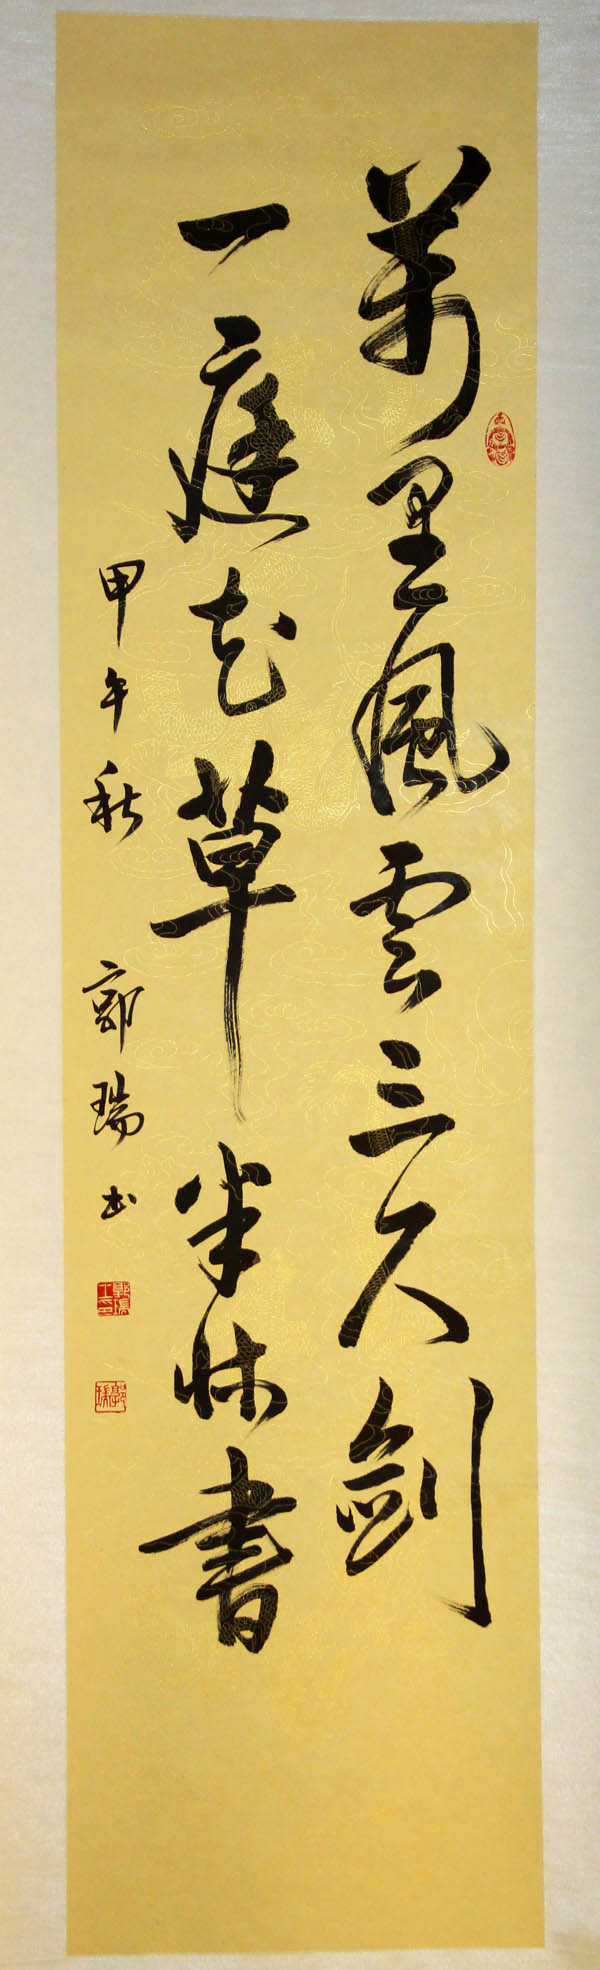 萬里風雲三尺劍
一庭花草半牀書
甲午秋 郭瑞书